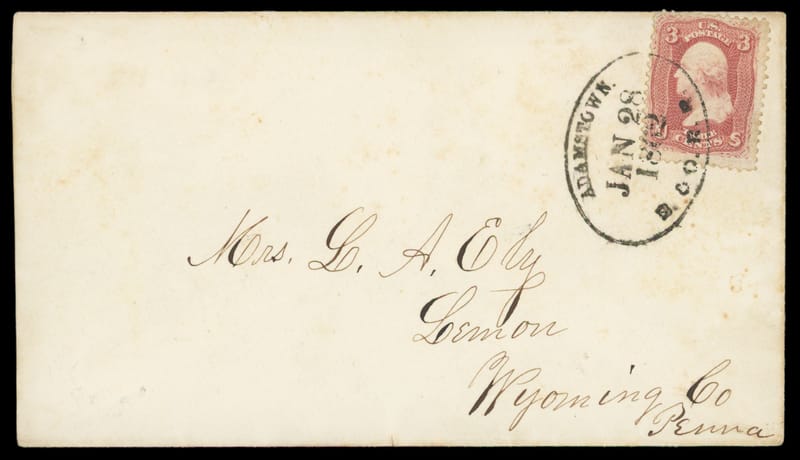 3 U.S. POSTAGE 3
THREE CENTS
ADAMSTOWN.
JAN 28
CO.
Mrs. L. A. Ely
Lemon
Wyoming Co
Penna